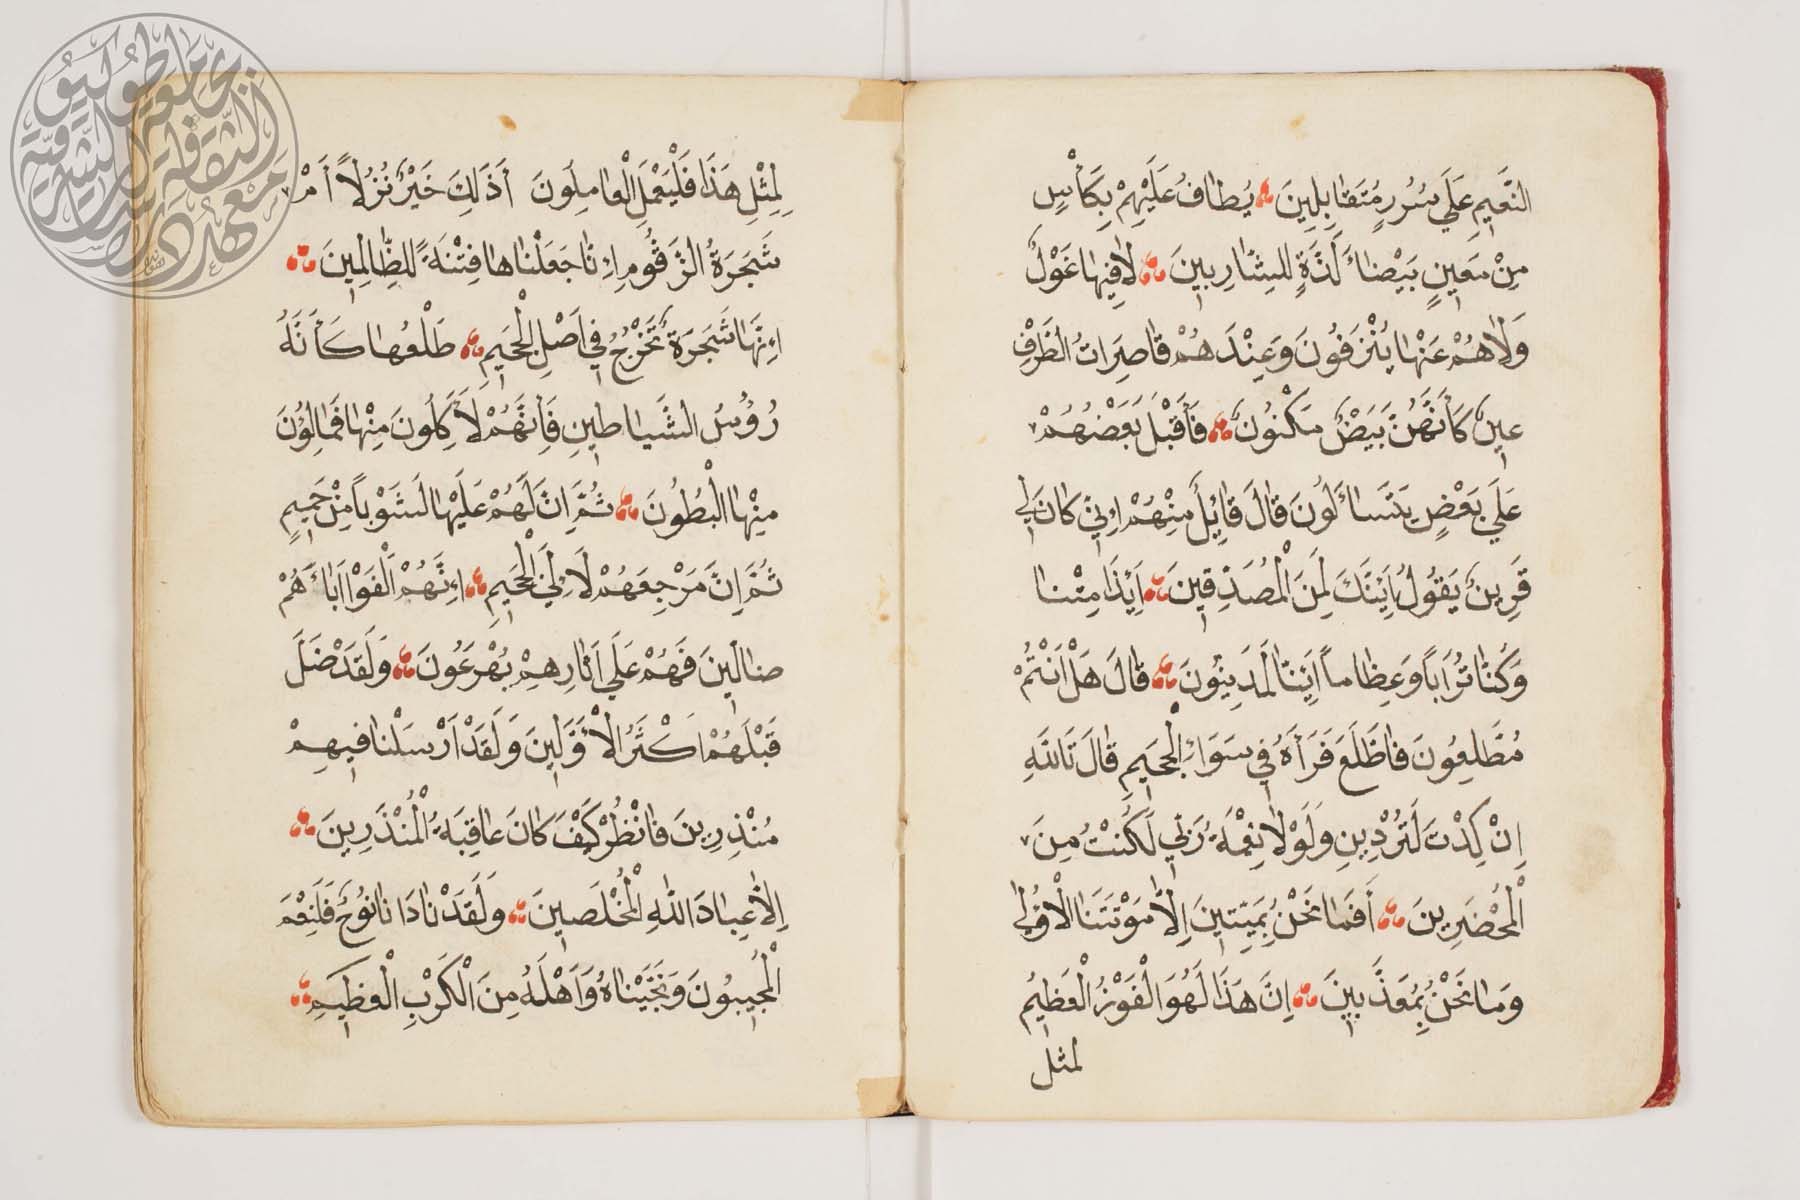 النَّعِيمِ عَلَي سُرُرٍ مُتَقَابِلِينَ يُطَافُ عَلَيْهِمْ بِكَأْسٍ
مِنْ مَعِينٍ بَيْضَاءَ لَذَّةٍ لِلشَّارِبِينَ لَا فِيهَا غَوْلٌ
وَلَا هُمْ عَنْهَا يُنْزَفُونَ وَعِنْدَهُمْ قَاصِرَاتُ الطَّرْفِ
عِينٌ كَأَنَّهُنَّ بَيْضٌ مَكْنُونٌ فَأَقْبَلَ بَعْضُهُمْ
عَلَي بَعْضٍ يَتَسَاءَلُونَ قَالَ قَائِلٌ مِنْهُمْ إِنِّي كَانَ لِي
قَرِينٌ يَقُولُ أَئِنَّكَ لَمِنَ الْمُصَدِّقِينَ أَئِذَا مِتْنَا
وَكُنَّا تُرَاباً وَعِظَاماً أَئِنَّا لَمَدِينُونَ قَالَ هَلْ أَنْتُمْ
مُطَّلِعُونَ فَاطَّلَعَ فَرَأَهُ فِي سَوَاءِ الْجَحِيمِ قَالَ تَاللَّهِ
إِنْ كِدْتَ لَتُرْدِينِ وَلَوْلَا نِعْمَةُ رَبِّي لَكُنْتُ مِنَ
الْمُحْضَرِينَ أَفَمَا نَحْنُ بِمَيِّتِينَ إِلَّا مَوْتَتَنَا الْأُولَي
وَمَا نَحْنُ بِمُعَذَّبِينَ إِنَّ هَذَا لَهُوَ الْفَوْزُ الْعَظِيمُ
لمثل
لِمِثْلِ هَذَا فَلْيَعْمَلِ الْعَامِلُونَ أَذَلِكَ خَيْرٌ نُزُلاً أَمْ
شَجَرَةُ الزَّقُّومِ إِنَّا جَعَلْنَاهَا فِتْنَةً لِلظَّالِمِينَ
إِنَّهَا شَجَرَةٌ تَخْرُجُ فِي أَصْلِ الْجَحِيمِ طَلْعُهَا كَأَنَّهُ
رُؤُسُ الشَّيَاطِينِ فَإِنَّهُمْ لَأَكِلُونَ مِنْهَا فَمَالِؤُنَ
مِنْهَا الْبُطُونَ ثُمَّ إِنَّ لَهُمْ عَلَيْهَا لَشَوْباً مِنْ حَمِيمٍ
ثُمَّ إِنَّ مَرْجِعَهُمْ لَا لَي الْجَحِيمِ إِنَّهُمْ أَلْفَوْا آبَاءَهُمْ
ضَالِّينَ فَهُمْ عَلَي آثَارِهِمْ يُهْرَعُونَ وَلَقَدْ ضَلَّ
قَبْلَهُمْ أَكْثَرُ الْأَوَّلِينَ وَلَقَدْ أَرْسَلْنَا فِيهِمْ
مُنْذِرِينَ فَانْظُرْ كَيْفَ كَانَ عَاقِبَةُ الْمُنْذَرِينَ
إِلَّا عِبَادَ اللَّهِ الْمُخْلَصِينَ وَلَقَدْ نَادَانَا نُوحٌ فَلَنِعْمَ
الْمُجِيبُونَ وَنَجَّيْنَاهُ وَأَهْلَهُ مِنَ الْكَرْبِ الْعَظِيمِ
جامعة طوكيو
معهد دراسات الثقافة الشرقية